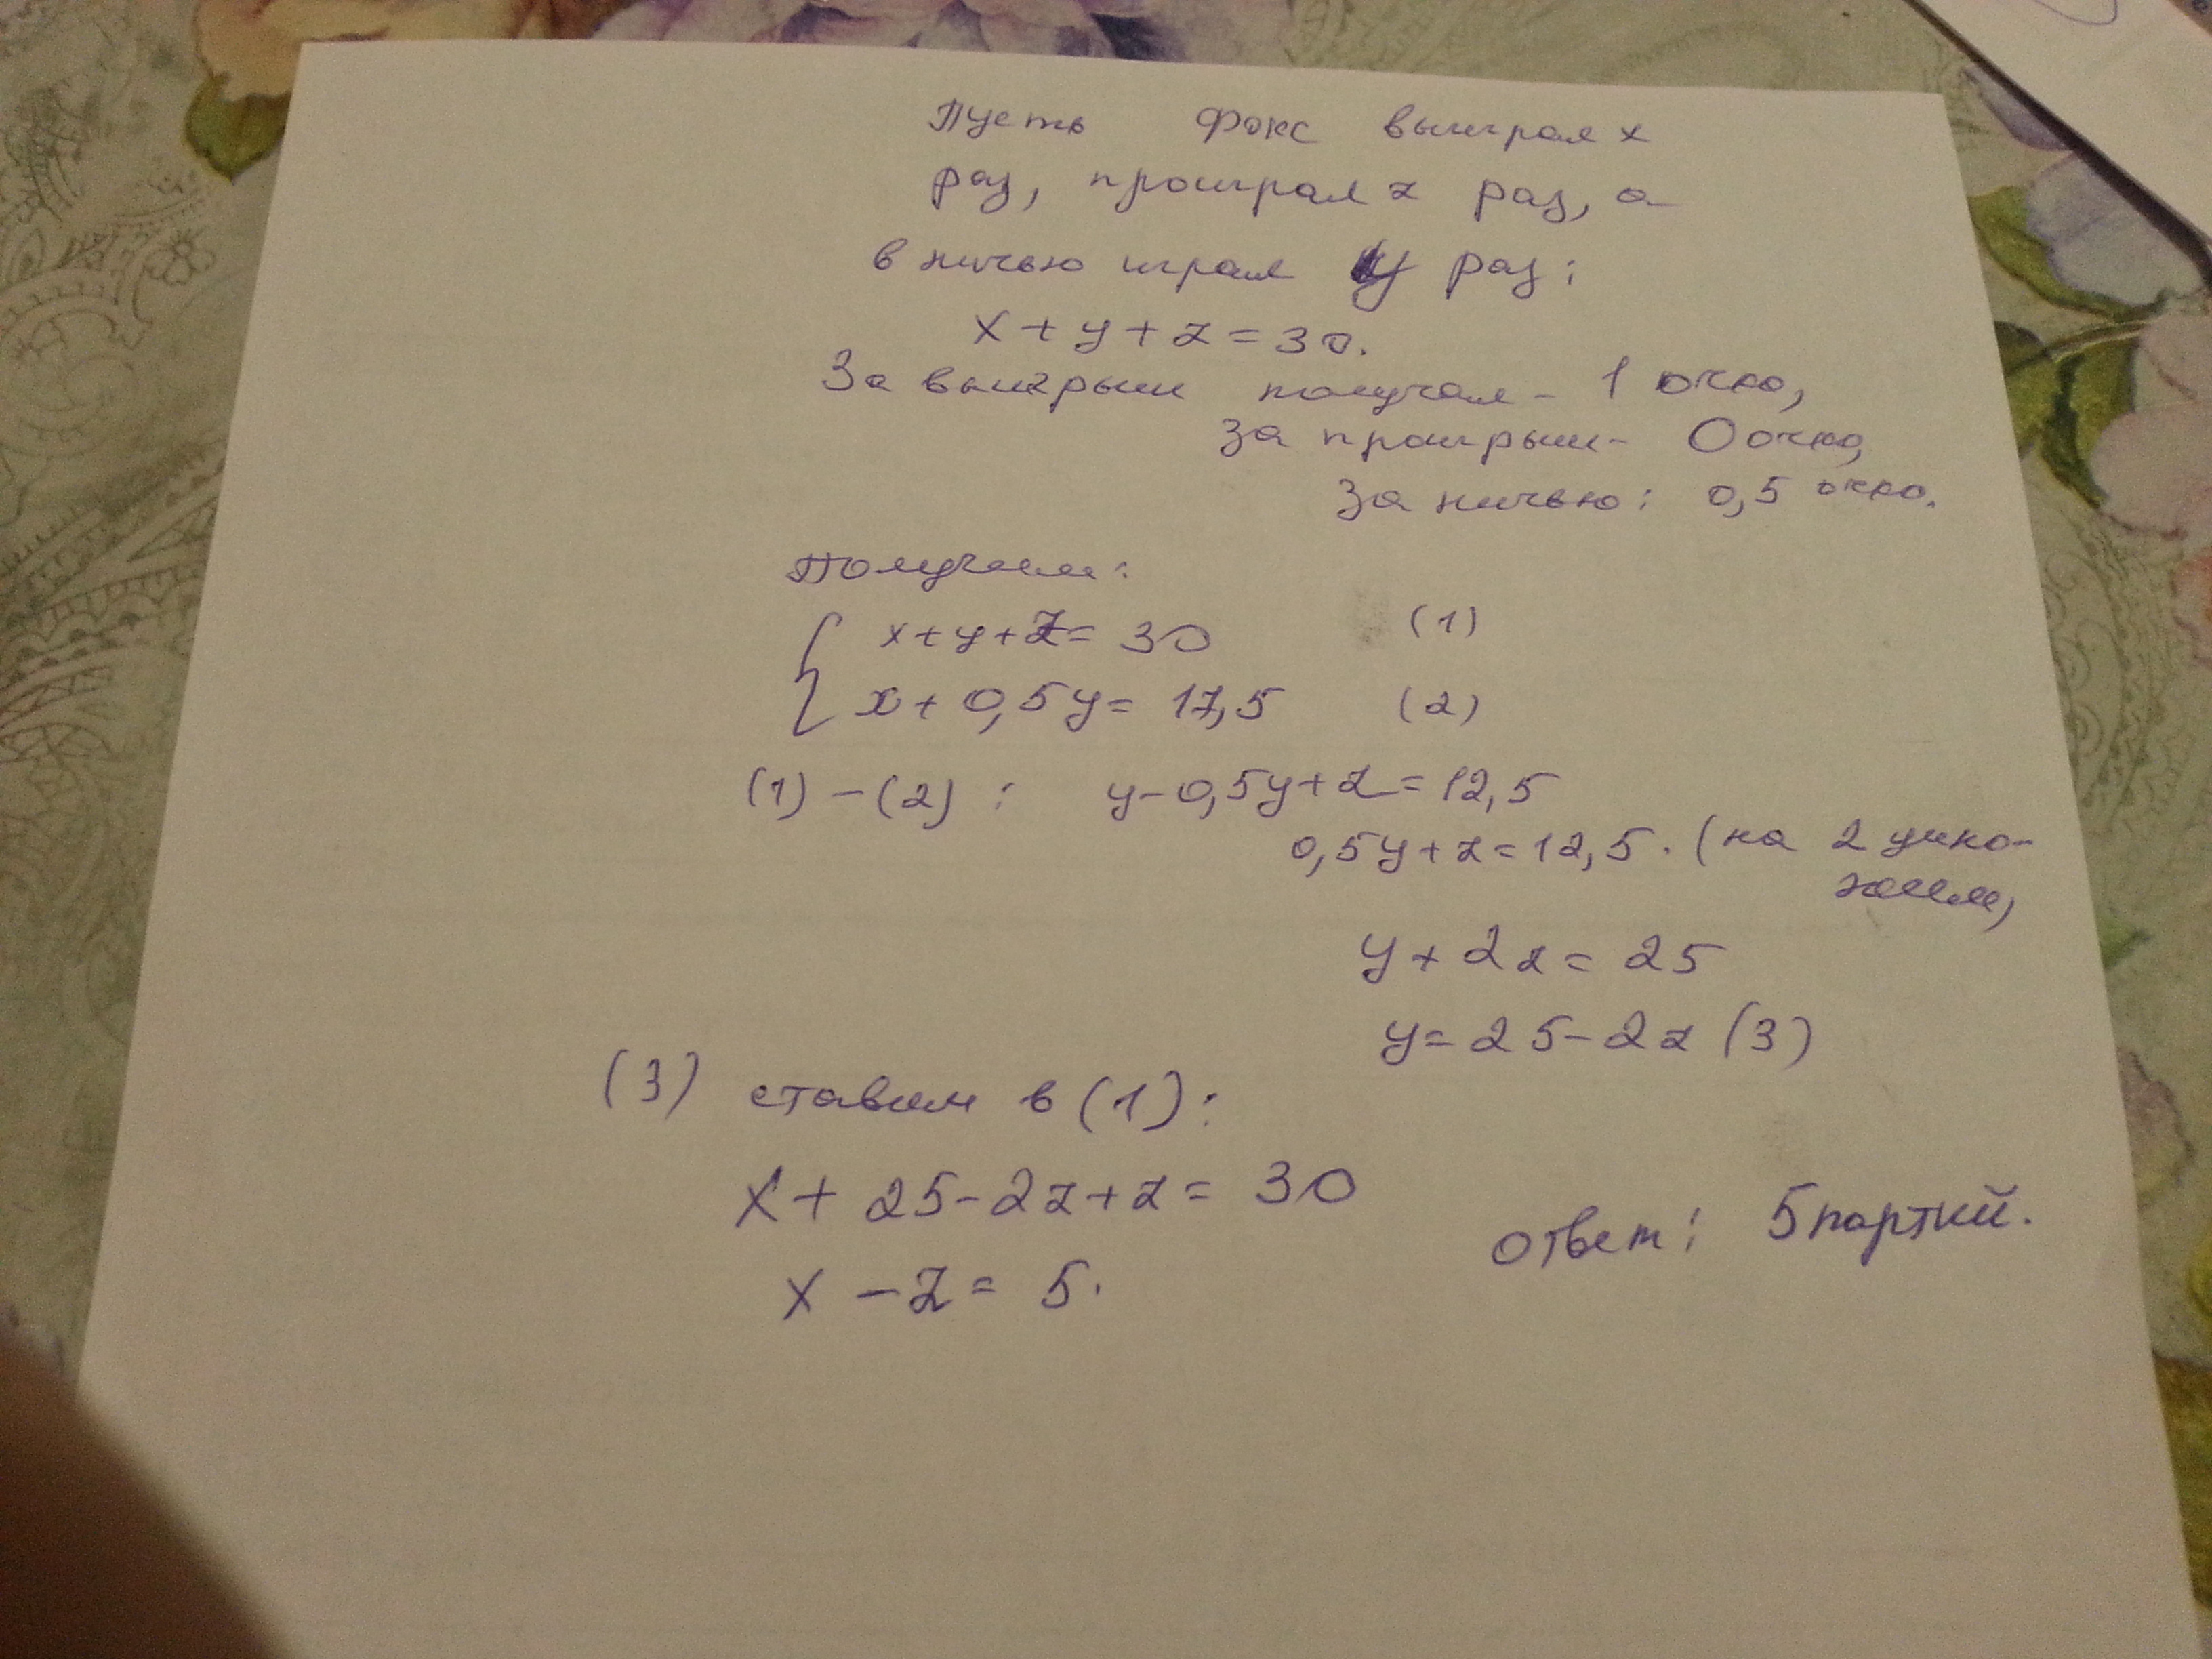 Пусть Фокс выиграл x
раз, проиграл z раз, а
в ничью играл y раз:
x + y + z = 30.
За выигрыш получал - 1 очко,
за проигрыш - 0 очко,
за ничью: 0,5 очко.
Получаем:
{ x + y + z = 30 (1)
x + 0,5y = 17,5 (2)
(1) - (2) : y - 0,5y + z = 12,5
0,5y + z = 12,5. (на 2 умно-
жаем,
y + 2z = 25
y = 25 - 2z (3)
(3) ставим в (1):
x + 25 - 2z + z = 30
Ответ: 5 партий.
x - z = 5.